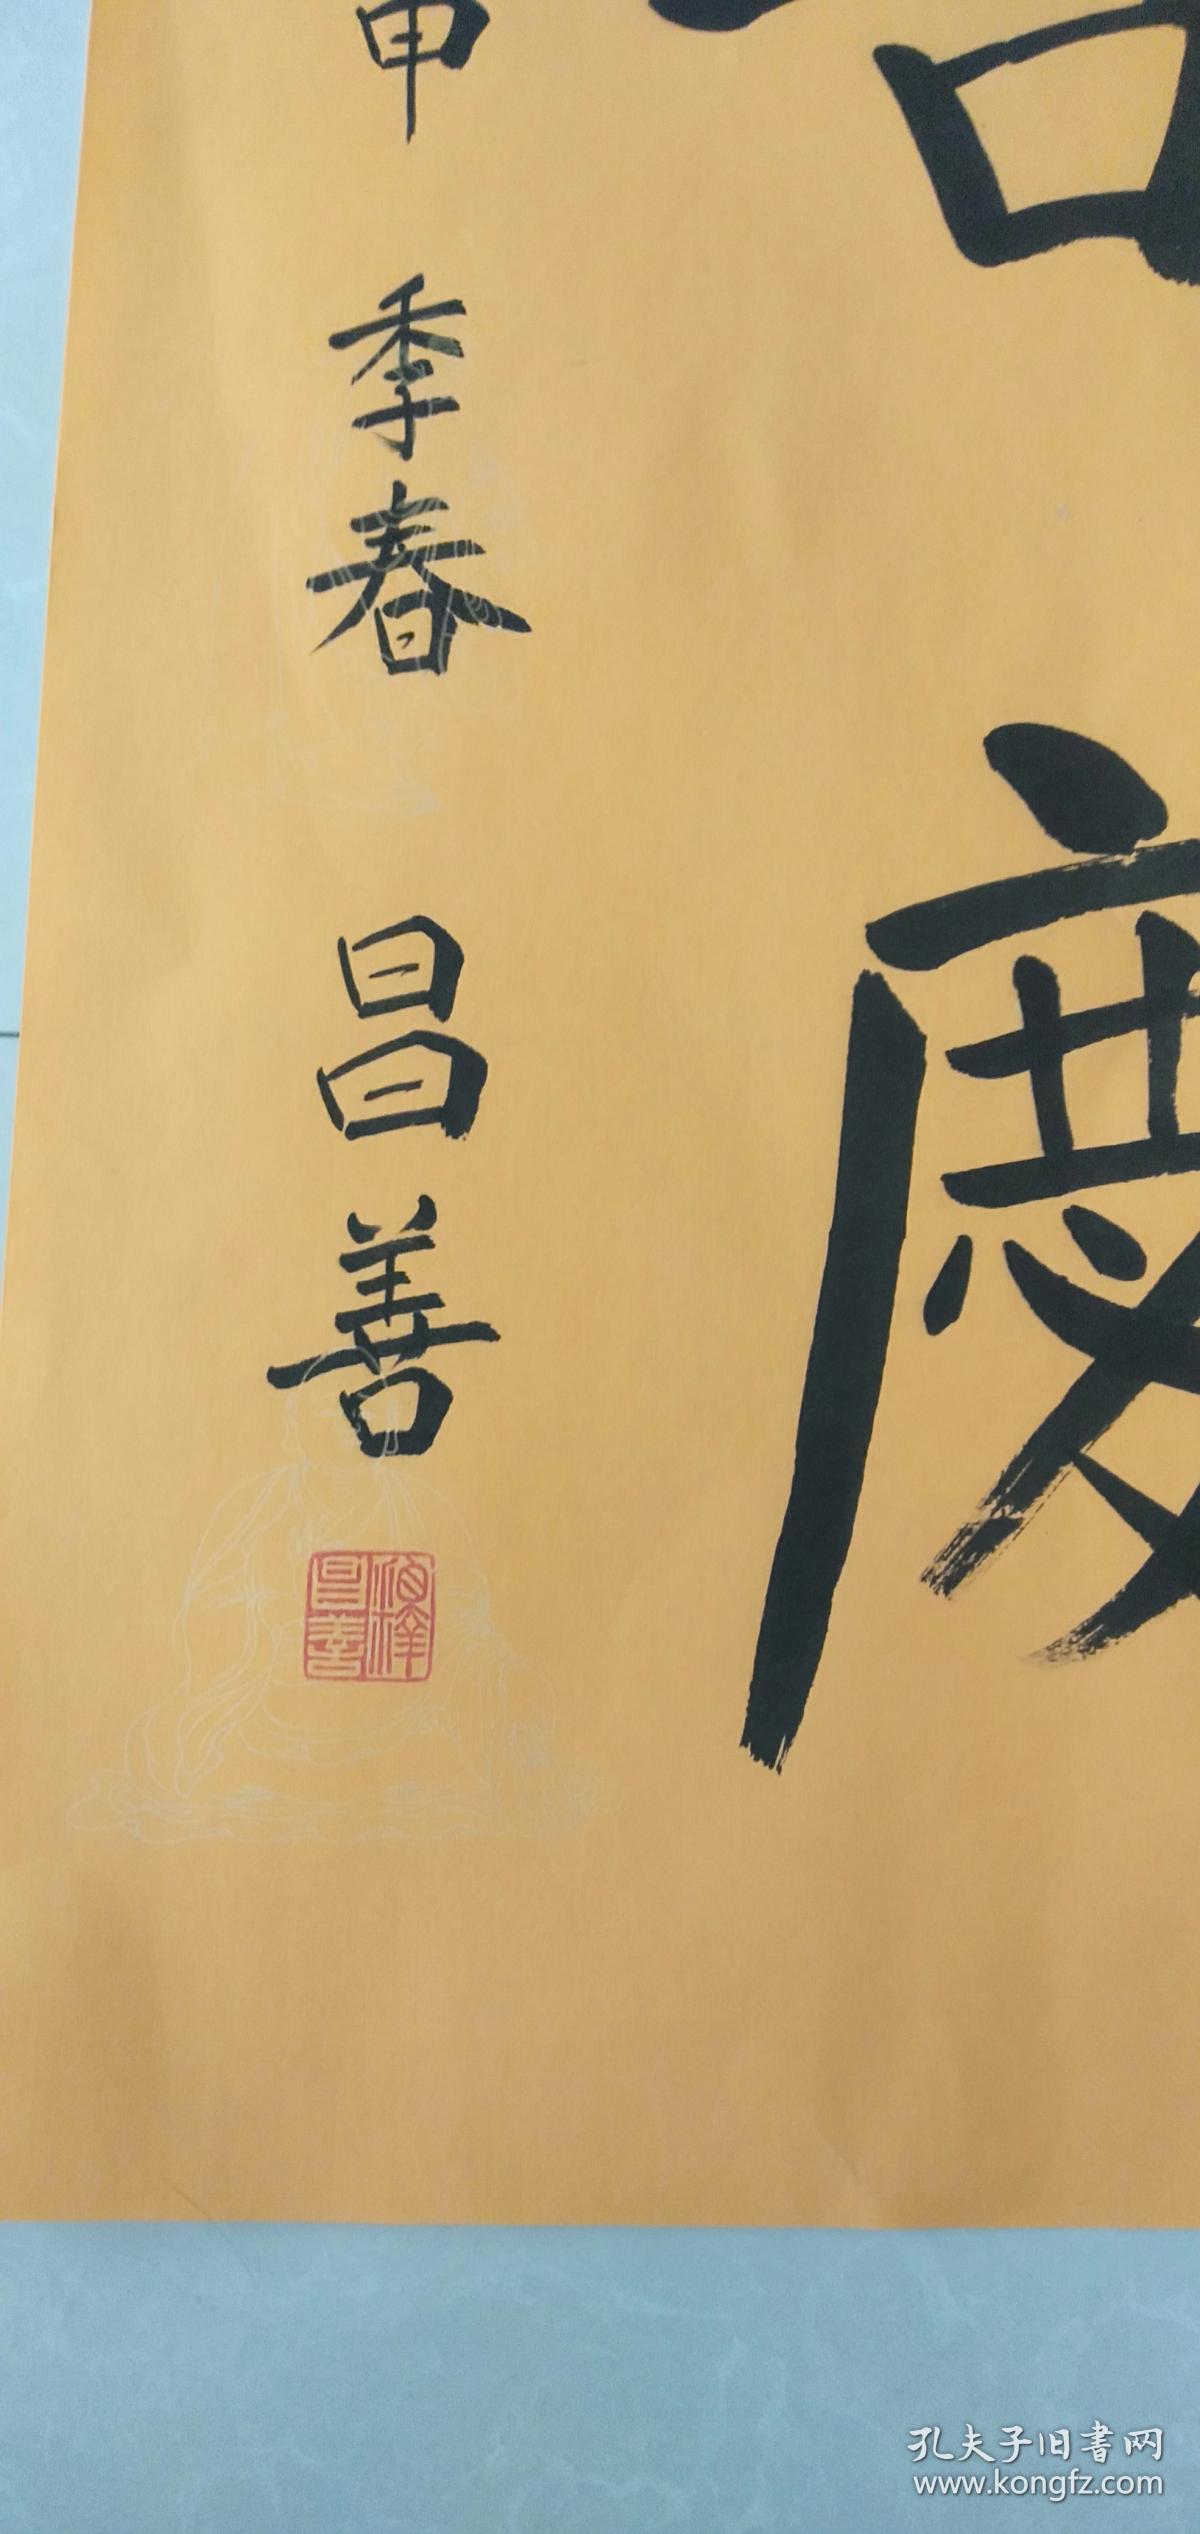 慶
申 季春 昌善
昌善
孔夫子旧書网
www.kongfz.com